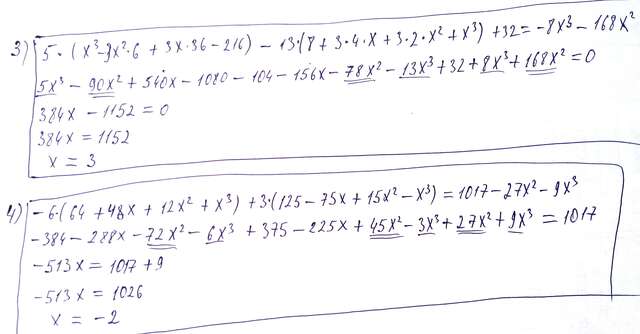 3) 5·(x³-9x²·6+3x·36-216)-13·(8+3·4·x+3·2·x²+x³)+32=-8x³-168x²
5x³-90x²+540x-1080-104-156x-78x²-13x³+32+8x³+168x²=0
384x-1152=0
384x=1152
x=3
4) -6·(64+48x+12x²+x³)+3·(125-75x+15x²-x³)=1017-27x²-9x³
-384-288x-72x²-6x³+375-225x+45x²-3x³+27x²+9x³=1017
-513x=1017+9
-513x=1026
x=-2